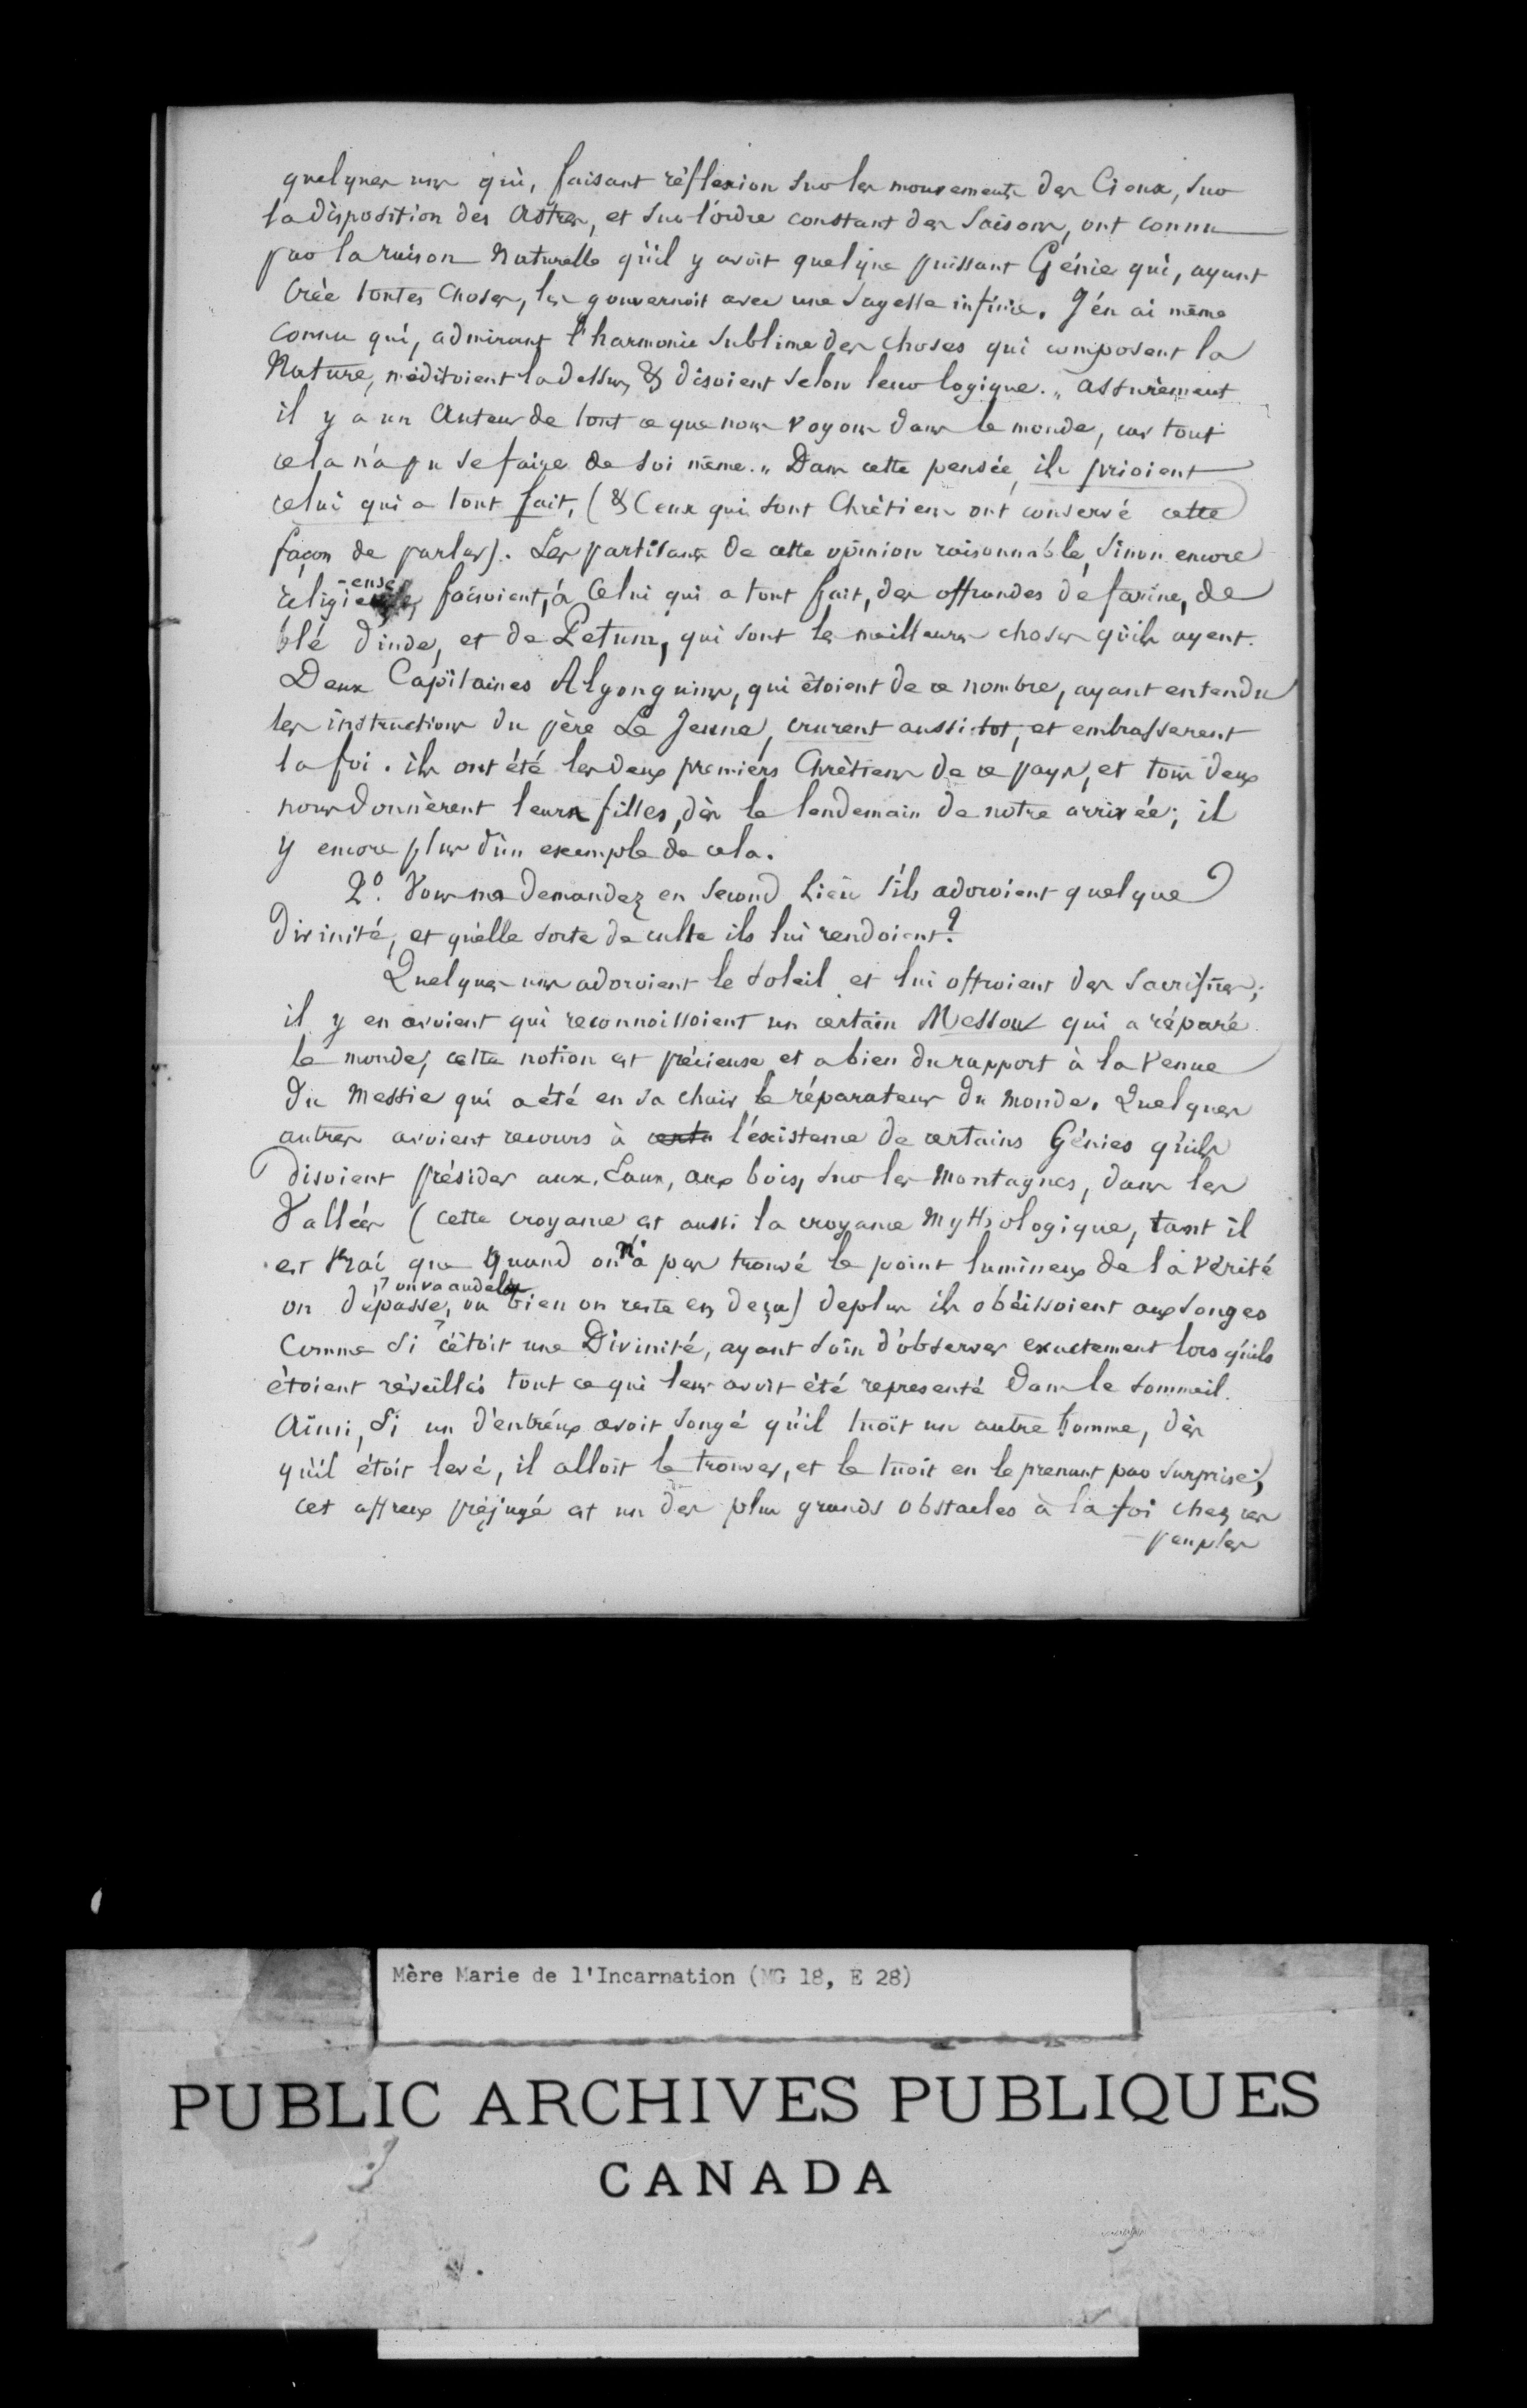 quelques uns qui, faisant réflexion sur les mouvements des Cieux, sur
la disposition des Astres, et sur l'ordre constant des Saisons, ont connu
par la raison Naturelle qu'il y avoit quelque puissant Génie qui, ayant
Créé toutes Choses, les gouvernoit avec une sagesse infinie. J'en ai même
connu qui, admirant l'harmonie sublime des choses qui composent la
Nature, méditoient la dessus, & disoient selon leur logique. „ assurément
il y a un Auteur de tout ce que nous voyons dans le monde, car tout
cela n'a pu se faire de soi même. „ Dans cette pensée, ils prioient
celui qui a tout fait, (& Ceux qui sont Chrétiens ont conservé cette
façon de parler). Les partisans de cette opinion raisonnable, sinon encore
religieuse, faisoient, à Celui qui a tout fait, des offrandes de farine, de
blé d'inde, et de Petum, qui sont les meilleures choses qu'ils ayent.
Deux Capitaines Algonquins, qui étoient de ce nombre, ayant entendu
les instructions du père Le Jeune, crurent aussi-tot, et embrasserent
la foi. ils ont été les deux premiers Chrétiens de ce pays, et tous deux
nous donnèrent leurs filles, dès le lendemain de notre arrivée; il
y encore plus d'un exemple de cela.
2º. Vous me demandez en second Lieu s'ils adoroient quelque
Divinité, et quelle sorte de culte ils lui rendoient?
Quelques uns adoroient le soleil et lui offroient des sacrifices;
il y en avoient qui reconnoissoient un certain Messou qui a réparé
le monde; cette notion est précieuse et a bien du rapport à la venue
du Messie qui a été en sa chair le réparateur du monde. Quelques
autres avoient recours à certa l'existence de certains Génies qu'ils
disoient présider aux Eaux, aux bois, sur les Montagnes, dans les
Vallées (cette croyance est aussi la croyance Mythologique, tant il
est vrai que quand on n'a pas trouvé le point lumineux de la vérité
on dépasse, on va audela ou bien on reste en deça) deplus ils obéissoient aux songes
comme si c'étoit une Divinité, ayant soin d'observer exactement lors qu'ils
étoient réveillés tout ce qui leur avoit été representé dans le sommeil.
Ainsi, si un d'entréux avoit songé qu'il tuoit un autre homme, dès
qu'il étoit levé, il alloit le trouver, et le tuoit en le prenant par surprise,
cet affreux préjugé est un des plus grands obstacles à la foi chez ces
peuples
Mère Marie de l'Incarnation (MG 18, E 28)
PUBLIC ARCHIVES PUBLIQUES
CANADA